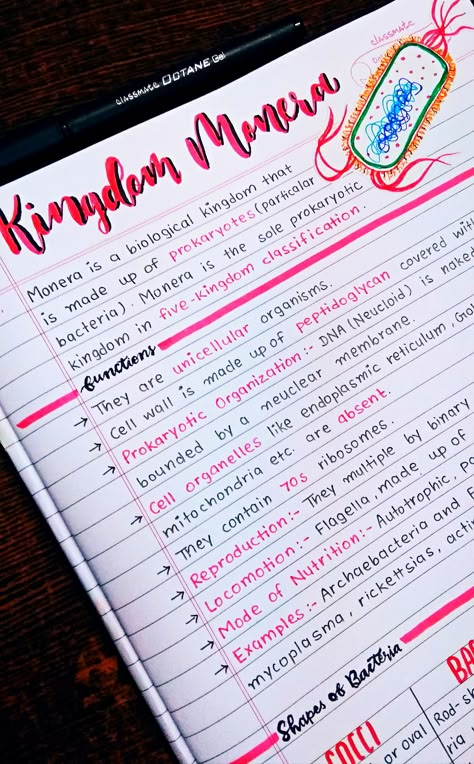 classmate
classmate OCTANE Gel
Kingdom Monera
Monera is a biological kingdom that
is made up of prokaryotes (particalar
bacteria). Monera is the sole prokaryotic
kingdom in five-kingdom classification.
functions
→ They are unicellular organisms.
→ Cell wall is made up of peptidoglycan covered with
→ Prokaryotic Organization:- DNA (Neucloid) is naked
bounded by a neuclear membrane.
→ Cell organelles like endoplasmic reticulum,
mitochondria etc. are absent.
→ They contain 70s ribosomes.
→ Reproduction:- They multiple by binary
→ Locomotion:- Flagella, made up of
→ Mode of Nutrition:- Autotrophic,
→ Examples:- Archaebacteria and
mycoplasma, rickettsias,
Shapes of Bacteria
COCCI
or oval
Rod-